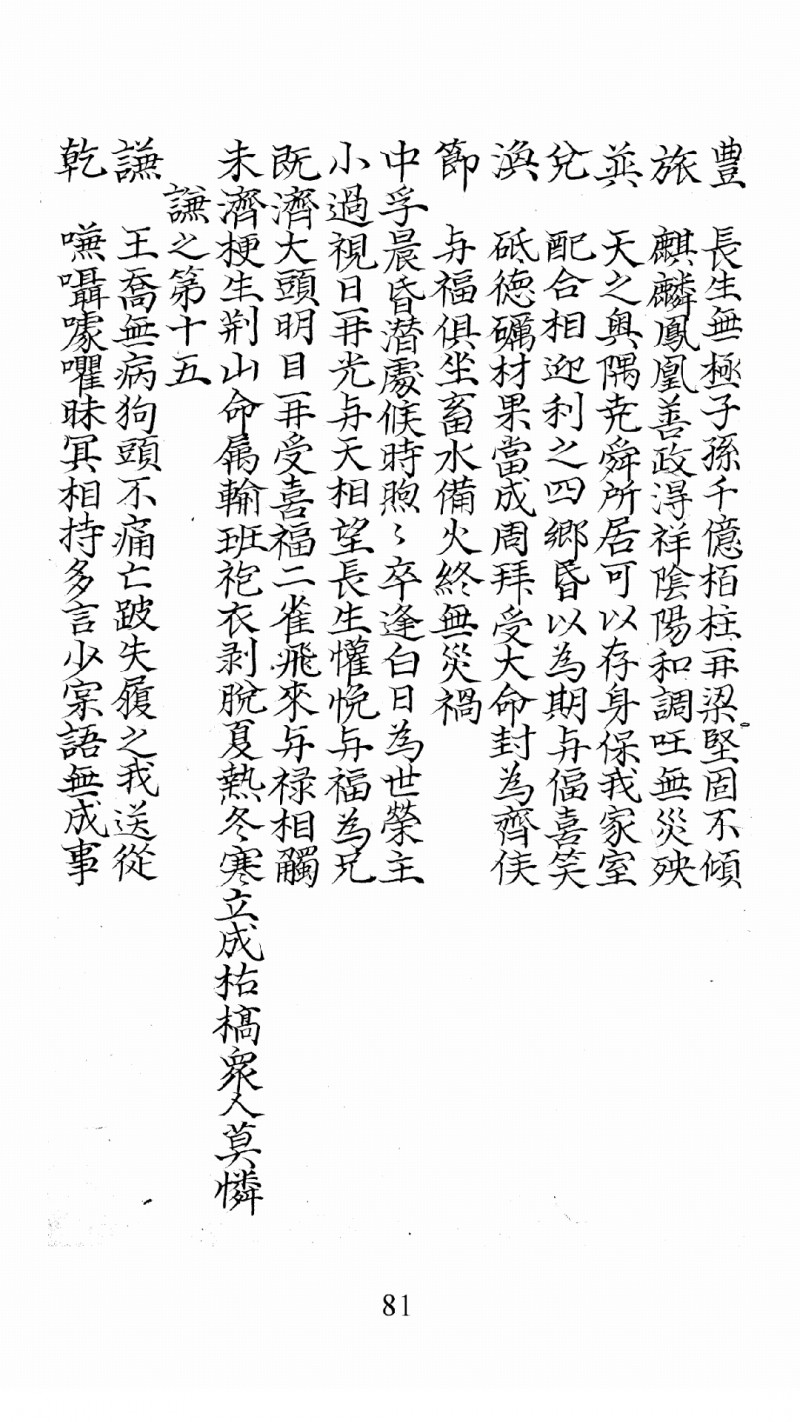 豊　長生無極子孫千億栢柱再梁堅固不傾
旅　麒麟鳳凰善政淂祥陰陽和調国無災殃
巽　天之奥隅尭舜所居可以存身保我家室
兌　配合相迎利之四郷昏以為期与偪喜笑
渙　砥徳礪材果當成周拜受大命封為齊侯
節　与福俱坐畜水備火終無災禍
中孚晨昏潜處候時煦〻卒逢白日為世榮主
小過視日再光与天相望長生懽悦与福為兄
既濟大頭明目再受喜福二雀飛來与禄相觸
未濟梗生荆山命属輸班袍衣剥脫夏熱冬寒立成枯槁衆人莫憐
謙之第十五
謙　王喬無病狗頭不痛亡跛失履之我送從
乾　嘸囁嚄嚁昧冥相持多言少實語無成事
81